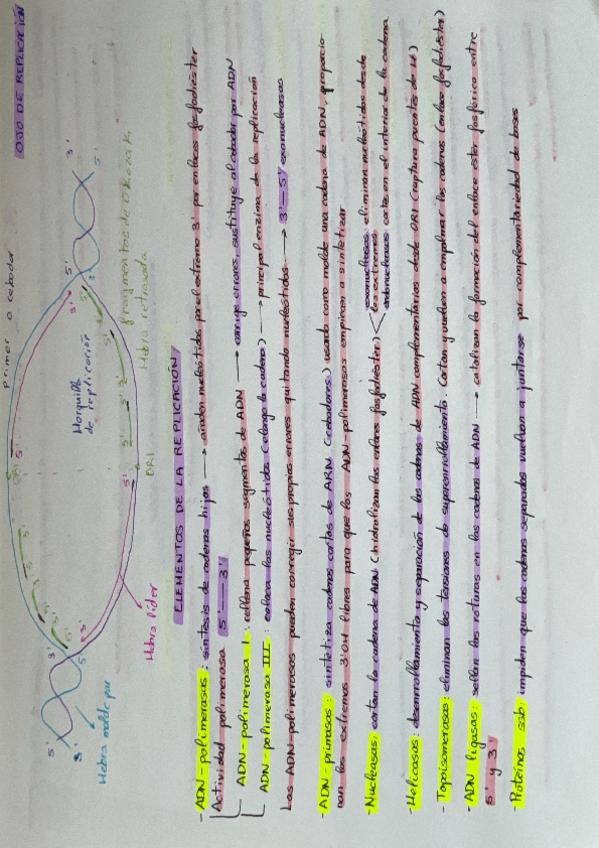 OJO DE REPLICACIÓN
primer o cebador
3'
5'
5'
3'
3'
5'
Horquilla
de replicación
fragmentos de OKazaKi
Hebra retrasada
ORI
Hebra líder
Hebra molde
5'
3'
ELEMENTOS DE LA REPLICACIÓN
- ADN-polimerasas: síntesis de cadenas hijas → añaden nucleótidos por el extremo 3' por enlaces fosfodiéster
Actividad polimerasa 5' — 3'
ADN-polimerasa I: rellena pequeños segmentos de ADN → corrige errores, sustituye al cebador por ADN
ADN-polimerasa III: coloca los nucleótidos (elonga la cadena) → principal enzima de la replicación
Las ADN-polimerasas pueden corregir sus propios errores quitando nucleótidos → 3'-5' exonucleasas
- ADN-primasas: sintetiza cadenas cortas de ARN (cebadores) usando como molde una cadena de ADN, proporcio-
nan los extremos 3'OH libres para que las ADN-polimerasas empiecen a sintetizar
- Nucleasas: cortan la cadena de ADN (hidrolizan los enlaces fosfodiéster)
exonucleasas: eliminan nucleótidos desde
los extremos
endonucleasas: corta en el interior de la cadena
- Helicasas: desenrrollamiento y separación de las cadenas de ADN complementarias desde ORI (ruptura puentes de H)
- Topoisomerasas: eliminan las tensiones de superenrollamiento. Cortan y vuelven a empalmar las cadenas (enlace fosfodiéster)
- ADN ligasas: sellan las roturas en las cadenas de ADN → catalizan la formación del enlace éster fosfórico entre
5' y 3'
- Proteínas ssb: impiden que las cadenas separadas vuelvan a juntarse por complementariedad de bases